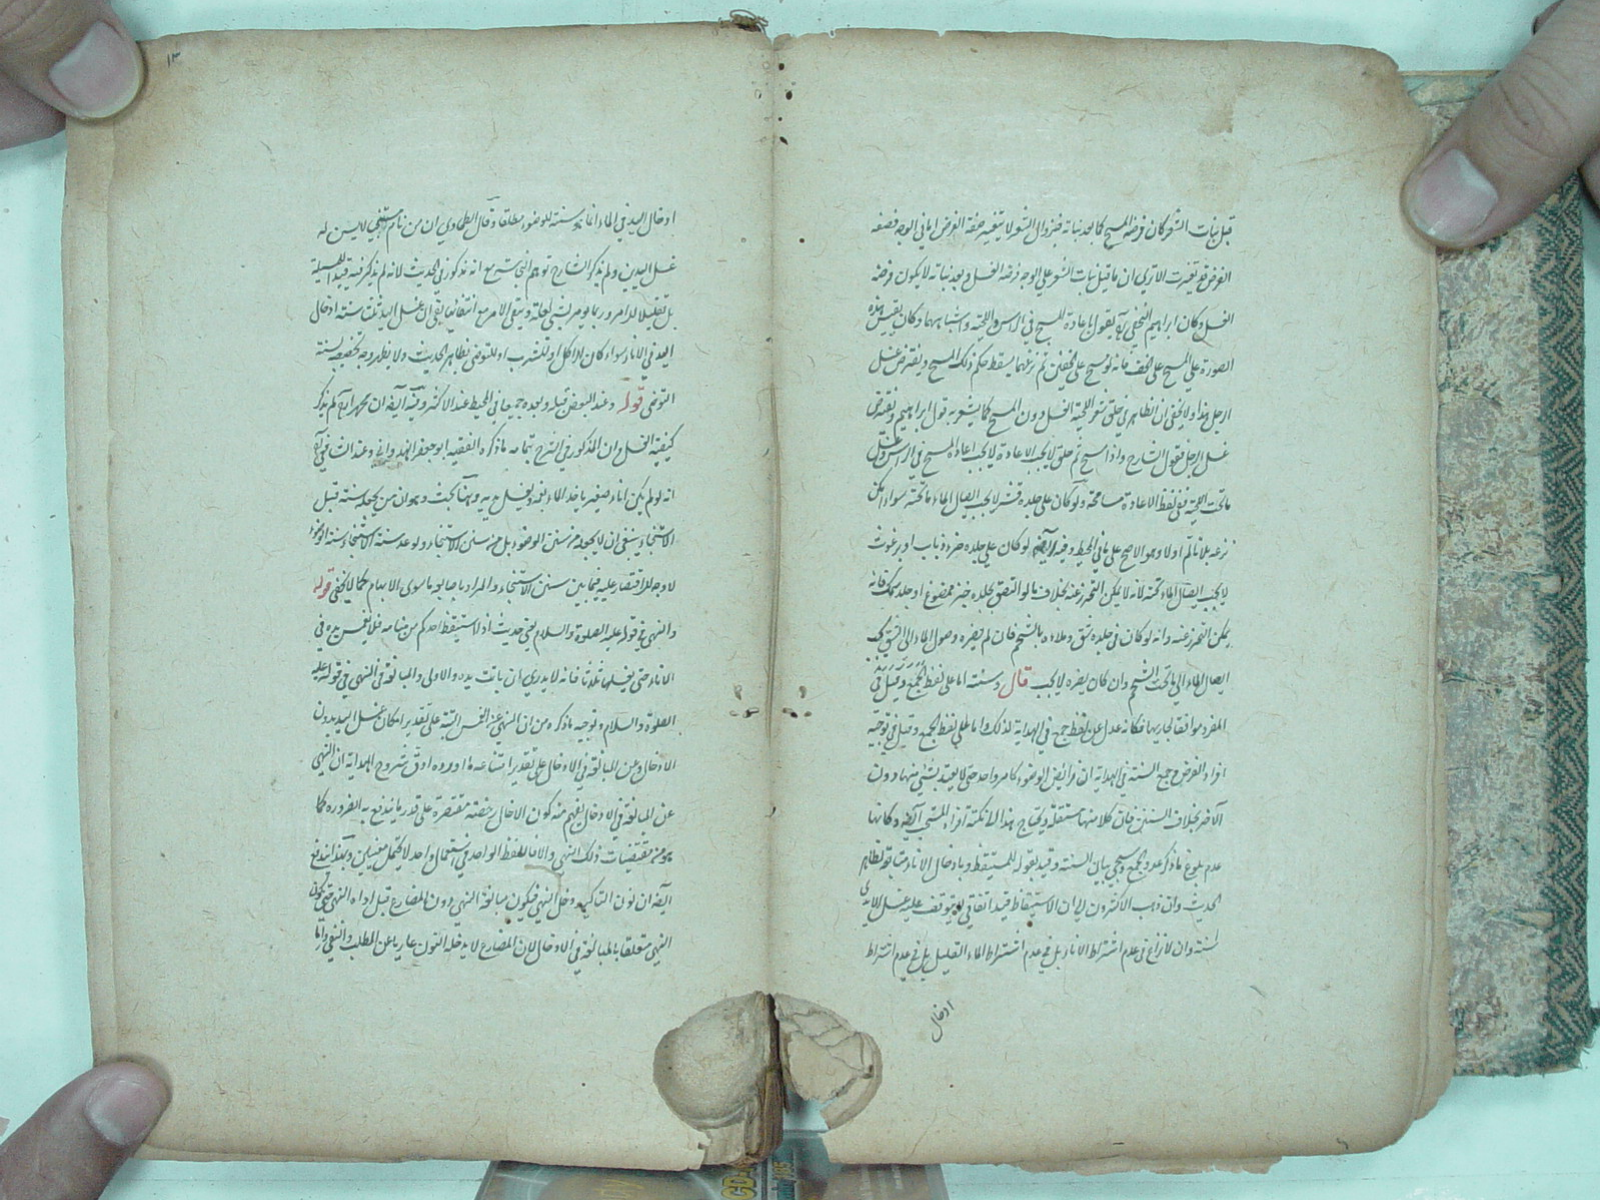 قبل نبات الشعر كان فرضه المسح كما بعد نباته فبزوال الشعر لا يتغير صفة الفرض اما في الوجه فصفة
الفرض قد تغيرت الا ترى ان ما قبل نبات الشعر على الوجه فرضه الغسل وبعد نباته لا يكون فرضه
الغسل وكان ابراهيم النخعي يقول باعادة المسح في الرأس واللحية واشباههما وكان يقيس هذه
الصورة على المسح على الخف فانه لو مسح على الخفين ثم نزعهما يسقط حكم ذلك المسح ويفترض غسل
ارجل هذا ولا يخفى ان الظاهر في حلق شعر اللحية الغسل دون المسح كما يشعر به قول ابراهيم ويفترض
غسل الرجل فقول الشارح واذا مسح ثم حلق لا يجب الاعادة لا يجب اعادة المسح في الرأس وغسل
ما تحت اللحية ففي لفظ الاعادة مسامحة ولو كان على جلده قشر لا يجب ايصال الماء ما تحته سواء امكن
نزعه بلا تألم او لا وهو الاصح على ما في المحيط وفيه ايضا لو كان على جلده خرء ذباب او برغوث
لا يجب ايصال الماء تحته لانه لا يمكن التحرز عنه بخلاف ما لو التصق بجلده خبز ممضوغ او جلد سمك فانه
يمكن التحرز عنه وانه لو كان في جلده شق وملاءه بالشحم فان لم يضره وصول الماء الى الشق يجب
ايصال الماء الى ما تحت الشحم وان كان يضره لا يجب قال وسنته اما على لفظ الجمع وقيل في
المفرد موافقا لجاريها فكانه عدل عن لفظ جمع في الهداية لذلك واما على لفظ الجمع وقيل في توجيه
افراد الفرض وجمع السنة في الهداية ان فرائض الوضوء كامر واحد حتى لا يعتد بشيء منها دون
الآخر بخلاف السنن فان كلا منها مستقلة ويحتاج بهذا الى نكتة افراد المستحب ايضا وكانها
عدم بلوغ ما ذكر عدد الجمع وسيجيء بيان السنة وقيد بقوله للمستيقظ وبادخال الاناء متابعة لظاهر
الحديث وان ذهب الاكثرون الى ان الاستيقاظ قيد اتفاقي لا يتوقف عليه غسل الايدي
لسنة وان لا نزاع في عدم اشتراط الاناء بل في عدم اشتراط الماء القليل بل في عدم اشتراط
ادخال
١٣
ادخال اليد في الماء اذ غايته سنة للوضوء مطلقا وقال الطحاوي ان من نام مستنجي لا يسن له
غسل اليدين ولم يذكر الشارح توهم النجاسة مع انه مذكور في الحديث لانه لم يذكر فيه قيدا للمسئلة
بل تعليلا للامر وربما يؤمر لشيء لعلة ويبقى الامر مع انتفائها بقي ان غسل اليد ثلث سنة ادخال
اليد في الاناء سواء كان للاكل او للشرب او للتوضي نظاهر الحديث ولا يظهر وجه تخصيصه لسنة
التوضي قوله وعند البعض قبله وبعده جميعا في المحيط عند الاكثر وفيه ايضا ان محمدا لم يذكر
كيفية الغسل وان المذكور في الشرح بتمامه ما ذكره الفقيه ابو جعفر الهندواني وعند الشافعي
انه لو لم يكن اناء صغير يأخذ الماء بفمه ويغسل يديه وههنا بحث وهو ان من يجعله سنة قبل
الاستنجاء ينبغي ان لا يجعله من سنن الوضوء بل من سنن الاستنجاء ولو عد سنة الاستنجاء سنة الوضوء
لا وجه للاقتصار عليه فيما بين سنن الاستنجاء والمراد باصابعه ما سوى الابهام كما لا يخفى قوله
والنهي في قوله عليه الصلوة والسلام يعني حديث اذا استيقظ احدكم من منامه فلا يغمس يده في
الاناء حتى يغسلها ثلثا فانه لا يدري اين باتت يده والاولى والمبالغة في النهي في قوله عليه
الصلوة والسلام وتوجيه ما ذكره من ان النهي عن الغمس البتة على تقدير امكان غسل اليد بدون
الادخال وعن المبالغة في الادخال على تقدير امتناعه ما اورده اوفق بشروح الهداية ان النهي
عن المبالغة في الادخال يفهم منه كون الادخال رخصة مقتصرة على قدر ما يندفع به الضرورة كما
هو من مقتضيات ذلك النهي والا فاللفظ الواحد في استعمال واحد لا يحتمل معنيين وبهذا اندفع
ايضا ان نون التأكيد دخل النهي فيكون مبالغة النهي دون المضارع قبل اداة النهي حتى يكون
النهي متعلقا بالمبالغة في الادخال لان المضارع لا يدخله النون عاريا عن المطلب والنفي واما